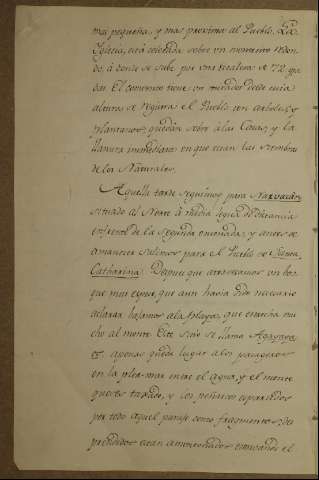 mas pequeña, y mas proxima al Pueblo. La
Iglesia, está colocada sobre un montecito redon-
do, á donde se sube por una escalera de 72 gra-
das. El convento tiene un mirador desde cuia
altura se registra el Pueblo, con arboles, y
plantanos, quedan sobre á las Casas, y la
llanura inmediata en que estan las siembras
de los Naturales.
Aquella tarde seguimos para Narvacán
situado al Norte á media legua de distancia
enfrente de la segunda ensenada, y antes de
amanecer salimos para el Pueblo de Santa
Catharina. Despues que atravesamos un bos-
que mui espeso, que aun havia sido necesario
aclarar, bajamos á la playa, que estrecha mu-
cho al monte. Este sitio se llama Agayaya-
os. apenas queda lugar á los pasageros
en la plea-mar entre el agua, y el monte
que está tajado, y los peñascos esparcidos
por todo aquel parage como fragmentos des-
prendidos estan amenazando